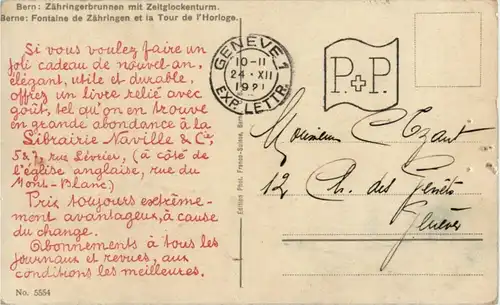 Bern: Zähringerbrunnen mit Zeitglockenturm.
Berne: Fontaine de Zähringen et la Tour de l'Horloge.
Si vous voulez faire un
joli cadeau de nouvel-an,
élégant, utile et durable,
offrez un livre relié avec
goût, tel qu'on en trouve
en grande abondance à la
Librairie Naville & Cie,
5 & 7, rue Lévrier, (à côté de
l'église anglaise, rue du
Mont-Blanc)
Prix toujours extrême-
ment avantageux, à cause
du change.
Abonnements à tous les
journaux et revues, aux
conditions les meilleures.
No. 5554
Edition Phot. Franco-Suisse, Berne
GENÈVE 1
10-11
24 XII
1921
EXP. LETTR.
P.+P.
Monsieur
12 Ch. des Genêts
Genève